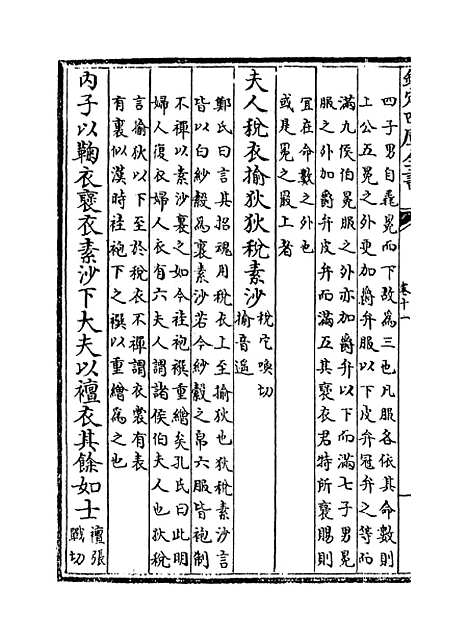 欽定四庫全書
卷十一
四子男自毳冕而下改為三也凡服各依其命數則
上公五冕之外更加爵弁服以下皮弁冠弁之等而
滿九侯伯冕服之外亦加爵弁以下而滿七子男冕
服之外加爵弁皮弁而滿五其褒衣君特所褒賜則
宜在命數之外也
或是冕之最上者
夫人稅衣揄狄狄稅素沙稅它喚切揄音遥
鄭氏曰言其招魂用稅衣上至揄狄也狄稅素沙言
皆以白紗縠為裏素沙若今紗縠之帛六服皆袍制
不襌以素沙裏之如今袿袍襈重繒矣孔氏曰此明
婦人復衣婦人衣有六夫人謂諸侯伯夫人也狄稅
言揄狄以下至於稅衣不襌謂衣裳有表
有裏似漢時袿袍下之襈以重繒為之也
內子以鞠衣褒衣素沙下大夫以襢衣其餘如士襢張戰切